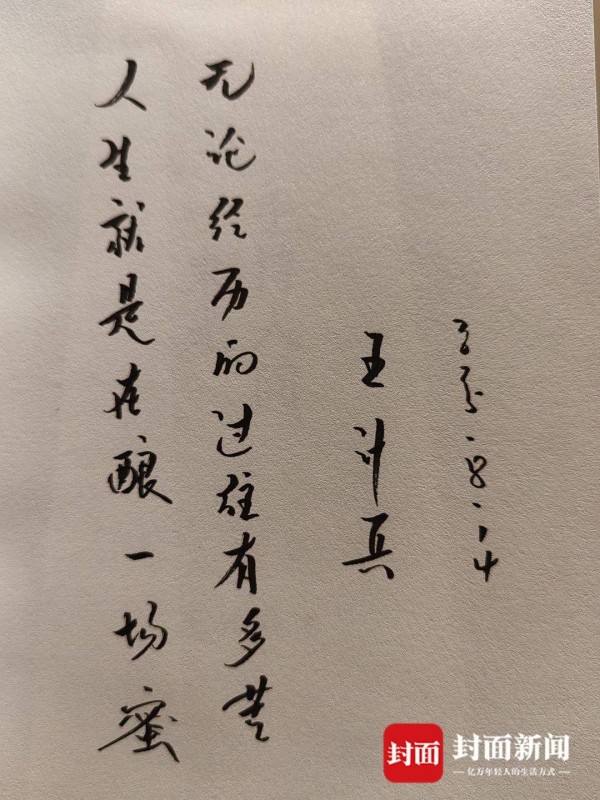 人生就是在酿一场蜜
无论经历的过往有多苦
王计兵
.8.14
封面
封面新闻
亿万年轻人的生活方式